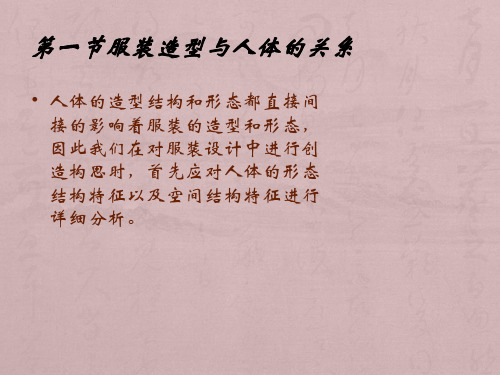 第一节服装造型与人体的关系
• 人体的造型结构和形态都直接间
接的影响着服装的造型和形态，
因此我们在对服装设计中进行创
造构思时，首先应对人体的形态
结构特征以及空间结构特征进行
详细分析。